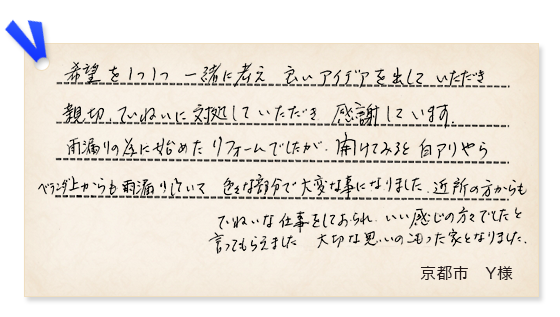 希望を1つ1つ 一緒に考え 良いアイデアを出して いただき
親切、ていねいに対処して いただき 感謝しています。
雨漏りの為に始めた リフォームでしたが、開けてみると 白アリやら
ベランダ上からも雨漏りしていて 色々な部分で大変な事になりました。近所の方からも
ていねいな仕事をしておられ、いい感じの方々でしたと
言ってもらえました 大切な思いのこもった家となりました。
京都市 Y様